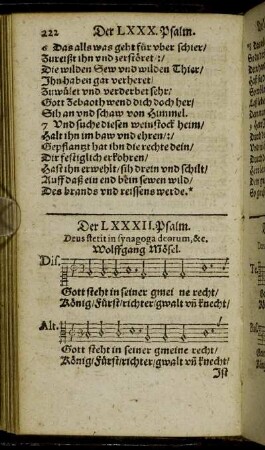 222 Der LXXX. Psalm.
6 Das alls was geht für vber schier/
Zureist ihn vnd zerstöret:/:
Die wilden Sew vnd wilden Thier/
Ihn haben gar verheret/
Zuwület vnd verderbet sehr/
Gott Zebaoth wend dich doch her/
Sih an vnd schaw von Himmel.
7 Vnd suche diesen weinstock heim/
Halt ihn im baw vnd ehren:/:
Gepflantzt hat ihn die rechte dein/
Dir festiglich erkohren/
Hast ihn erwehlt/ sih drein vnd schilt/
Auff daß ein end dein sewen wild/
Des brands vnd reissens werde.*
Der LXXXII. Psalm.
Deus stetit in synagoga deorum, &c.
Wolffgang Mösel.
Dis.
Gott steht in seiner gmei ne recht/
König/Fürst/richter/gwalt vñ knecht/
Alt.
Gott steht in seiner gmeine recht/
König/Fürst/richter/gwalt vñ knecht/
Ist